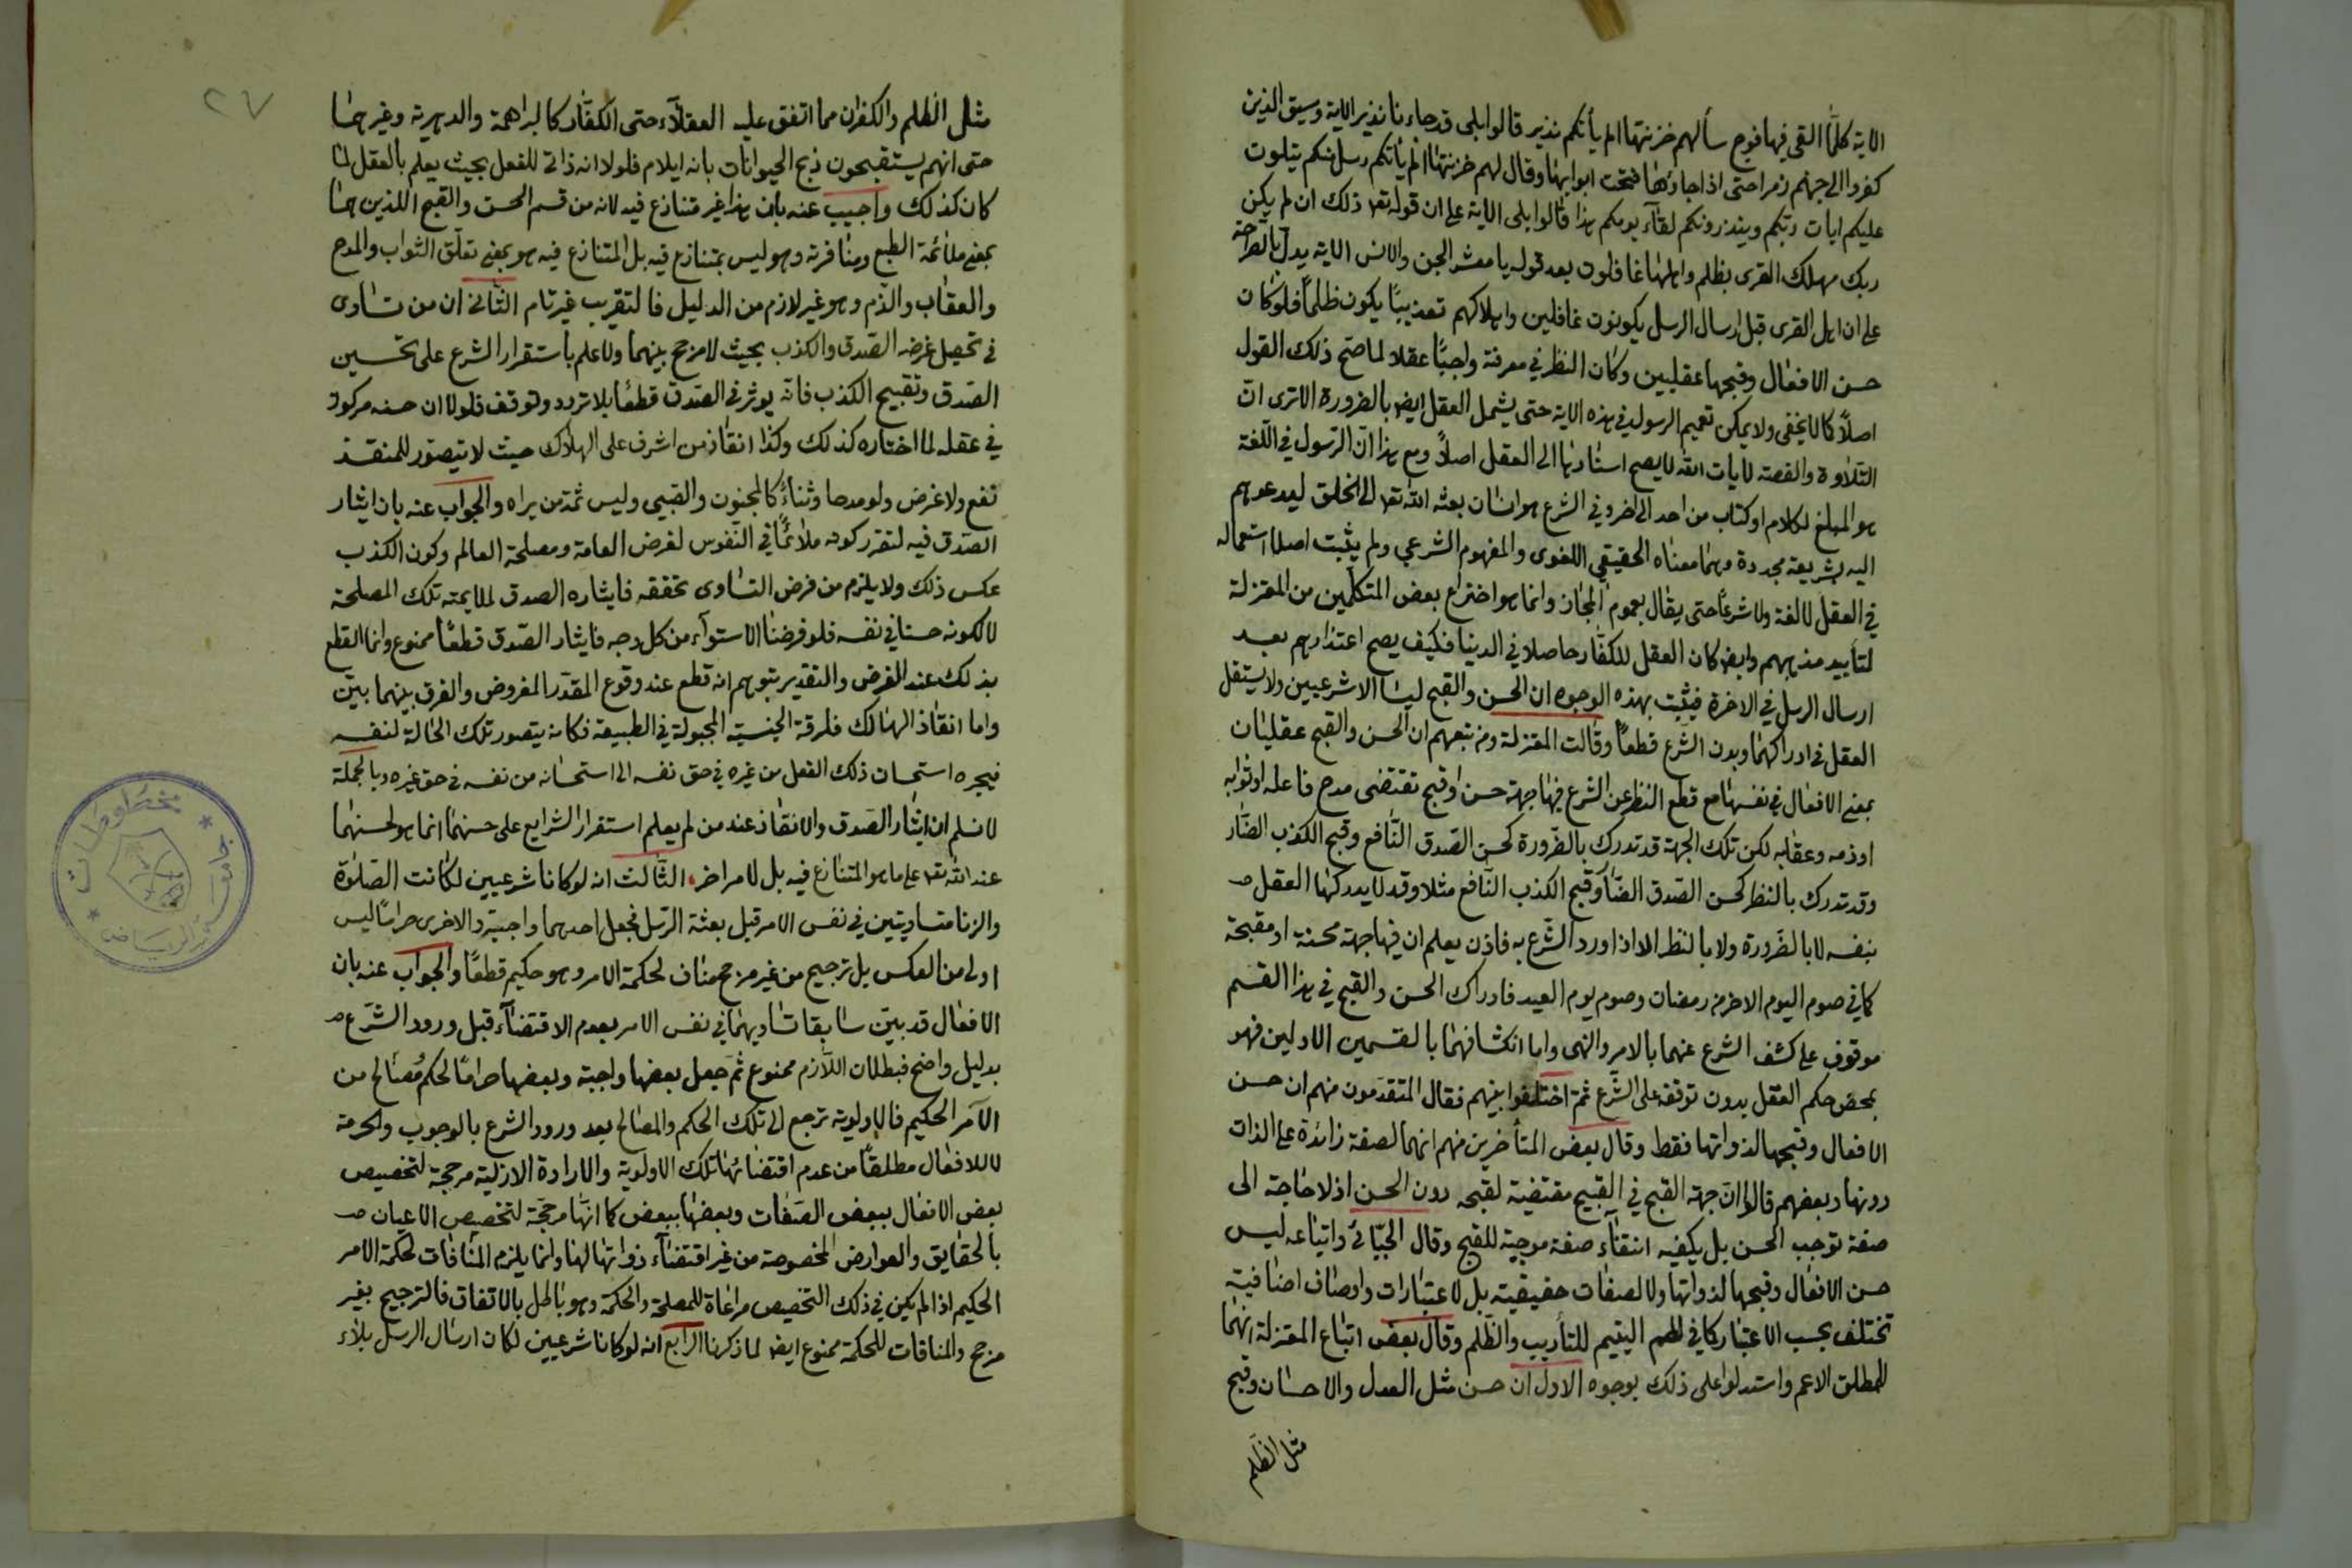 الاية كلما القى فيها فوج سألهم خزنتها الم يأتكم نذير قالوا بلى قد جاءنا نذير الاية وسيق الذين
كفروا الى جهنم زمرا حتى اذا جاؤها فتحت ابوابها وقال لهم خزنتها الم يأتكم رسل منكم يتلون
عليكم ايات ربكم وينذرونكم لقآء يومكم هذا قالوا بلى الاية على ان قوله تعا ذلك ان لم يكن
ربك مهلك القرى بظلم واهلها غافلون بعد قوله يا معشر الجن والانس الاية يدل بالصراحة
على ان اهل القرى قبل ارسال الرسل يكونون غافلين واهلاكهم تعذيبًا يكون ظلمًا فلو كان
حسن الافعال وقبحها عقليين وكان النظر في معرفته واجبًا عقلا لما صح ذلك القول
اصلاً كما لا يخفى ولا يمكن تعميم الرسول في هذه الاية حتى يشمل العقل ايضا بالضرورة الا ترى ان
التلاوة والقصة لايات الله لا يصح اسنادها الى العقل اصلاً ومع هذا ان الرسول في اللغة
هو المبلغ لكلام او كتاب من احد الى اخر وفي الشرع هو انسان بعثه الله تعا الى الخلق ليدعوهم
اليه بشريعة مجددة وهما معناه الحقيقي اللغوى والمفهوم الشرعي ولم يثبت اصلا استعماله
في العقل لا لغة ولا شرعًا حتى يقال بعموم المجاز وانما هو اختراع بعض المتكلمين من المعتزلة
لتأييد مذهبهم وايضا كان العقل للكفار حاصلا في الدنيا فكيف يصح اعتذارهم بعد
ارسال الرسل في الاخرة فيثبت بهذه الوجوه ان الحسن والقبح ليسا الا شرعيين ولا يستقل
العقل في ادراكهما وبدون الشرع قطعاً وقالت المعتزلة ومن تبعهم ان الحسن والقبح عقليان
بمعنى الافعال في نفسها مع قطع النظر عن الشرع فيها جهة حسن او قبح تقتضى مدح فاعله او ثوابه
او ذمه وعقابه لكن تلك الجهة قد تدرك بالضرورة كحسن الصدق النافع وقبح الكذب الضار
وقد تدرك بالنظر كحسن الصدق الضار وقبح الكذب النافع مثلا وقد لا يدركها العقل
بنفسه لا بالضرورة ولا بالنظر الا اذا ورد الشرع به فاذن يعلم ان فيها جهة محسنة او مقبحة
كما في صوم اليوم الاخر من رمضان وصوم يوم العيد فادراك الحسن والقبح في هذا القسم
موقوف على كشف الشرع عنهما بالامر والنهى واما انكشافهما بالقسمين الاولين فهو
بمحض حكم العقل بدون توقفه على الشرع ثم اختلفوا بينهم فقال المتقدمون منهم ان حسن
الافعال وقبحها لذواتها فقط وقال بعض المتأخرين منهم انهما لصفة زائدة على الذات
دونها وبعضهم قالوا ان جهة القبح في القبيح مقتضية لقبحه دون الحسن اذ لا حاجة الى
صفة توجب الحسن بل يكفيه انتفآء صفة موجبة للقبح وقال الجبائى واتباعه ليس
حسن الافعال وقبحها لذواتها ولا لصفات حقيقية بل لاعتبارات واوصاف اضافية
تختلف بحسب الاعتبار كما في لطم اليتيم للتأديب والظلم وقال بعض اتباع المعتزلة انهما
للمطلق الاعم واستدلوا على ذلك بوجوه الاول ان حسن مثل العدل والاحسان وقبح
مثل الظلم
٢٧
مثل الظلم والكفران مما اتفق عليه العقلآء حتى الكفار كالبراهمة والدهرية وغيرهما
حتى انهم يستقبحون ذبح الحيوانات بانه ايلام فلولا انه ذاتى للفعل بحيث يعلم بالعقل لما
كان كذلك واجيب عنه بان هذا غير متنازع فيه لانه من قسم الحسن والقبح اللذين هما
بمعنى ملائمة الطبع ومنافرته وهو ليس بمتنازع فيه بل المتنازع فيه هو بمعنى تعلق الثواب والمدح
والعقاب والذم وهو غير لازم من الدليل فالتقريب غير تام الثانى ان من تساوى
في تحصيل غرضه الصدق والكذب بحيث لا مرجح بينهما ولا علم باستقرار الشرع على تحسين
الصدق وتقبيح الكذب فانه يوثر في الصدق قطعًا بلا تردد وتوقف فلولا ان حسنه مركوز
في عقله لما اختاره كذلك وكذا انقاذ من اشرف على الهلاك حيث لا يتصور للمنقذ
نفع ولا غرض ولو مدحا وثناءً كالمجنون والصبى وليس ثمة من يراه والجواب عنه بان ايثار
الصدق فيه لتقرر كونه ملائمًا في النفوس لغرض العامة ومصلحة العالم وكون الكذب
عكس ذلك ولا يلزم من فرض التساوى تحققه فايثاره الصدق لملايمته تلك المصلحة
لا لكونه حسنا في نفسه فلو فرضنا الاستوآء من كل وجه فايثار الصدق قطعًا ممنوع وانما القطع
بذلك عند الفرض والتقدير بتوهم انه قطع عند وقوع المقدر المفروض والفرق بينهما بيّن
واما انقاذ الهالك فلرقة الجنسية المجبولة في الطبيعة فكانه يتصور تلك الحالة لنفسه
فيجره استحسان ذلك الفعل من غيره في حق نفسه الى استحسانه من نفسه في حق غيره وبالجملة
لا نسلم ان ايثار الصدق والانقاذ عند من لم يعلم استقرار الشرايع على حسنهما انما هو لحسنهما
عند الله تعا على ما هو المتنازع فيه بل لامر اخر الثالث انه لو كانا شرعيين لكانت الصلوة
والزنا متساويتين في نفس الامر قبل بعثة الرسل فجعل احدهما واجبة والاخرى حرامًا ليس
اولى من العكس بل ترجيح من غير مرجح مناف لحكمة الامر وهو حكيم قطعًا والجواب عنه بان
الافعال قد بيّن سابقا تساويهما في نفس الامر بعدم الاقتضآء قبل ورود الشرع
بدليل واضح فبطلان اللازم ممنوع ثم جعل بعضها واجبة وبعضها حرامًا لحكم ومصالح من
الآمر الحكيم فالاولوية ترجع الى تلك الحكم والمصالح بعد ورود الشرع بالوجوب والحرمة
لا للافعال مطلقًا من عدم اقتضائها تلك الاولوية والارادة الازلية مرجحة لتخصيص
بعض الافعال ببعض الصفات وبعضها ببعض كما انها مرجحة لتخصيص الاعيان
بالحقايق والعوارض المخصوصة من غير اقتضآء ذواتها لها وانما يلزم المنافات لحكمة الامر
الحكيم اذا لم يكن في ذلك التخصيص مراعاة للمصلحة والحكمة وهو باطل بالاتفاق فالترجيح بغير
مرجح والمنافات للحكمة ممنوع ايضا لما ذكرنا الرابع انه لو كانا شرعيين لكان ارسال الرسل بلاء
مخطوطات
جامعة الرياض